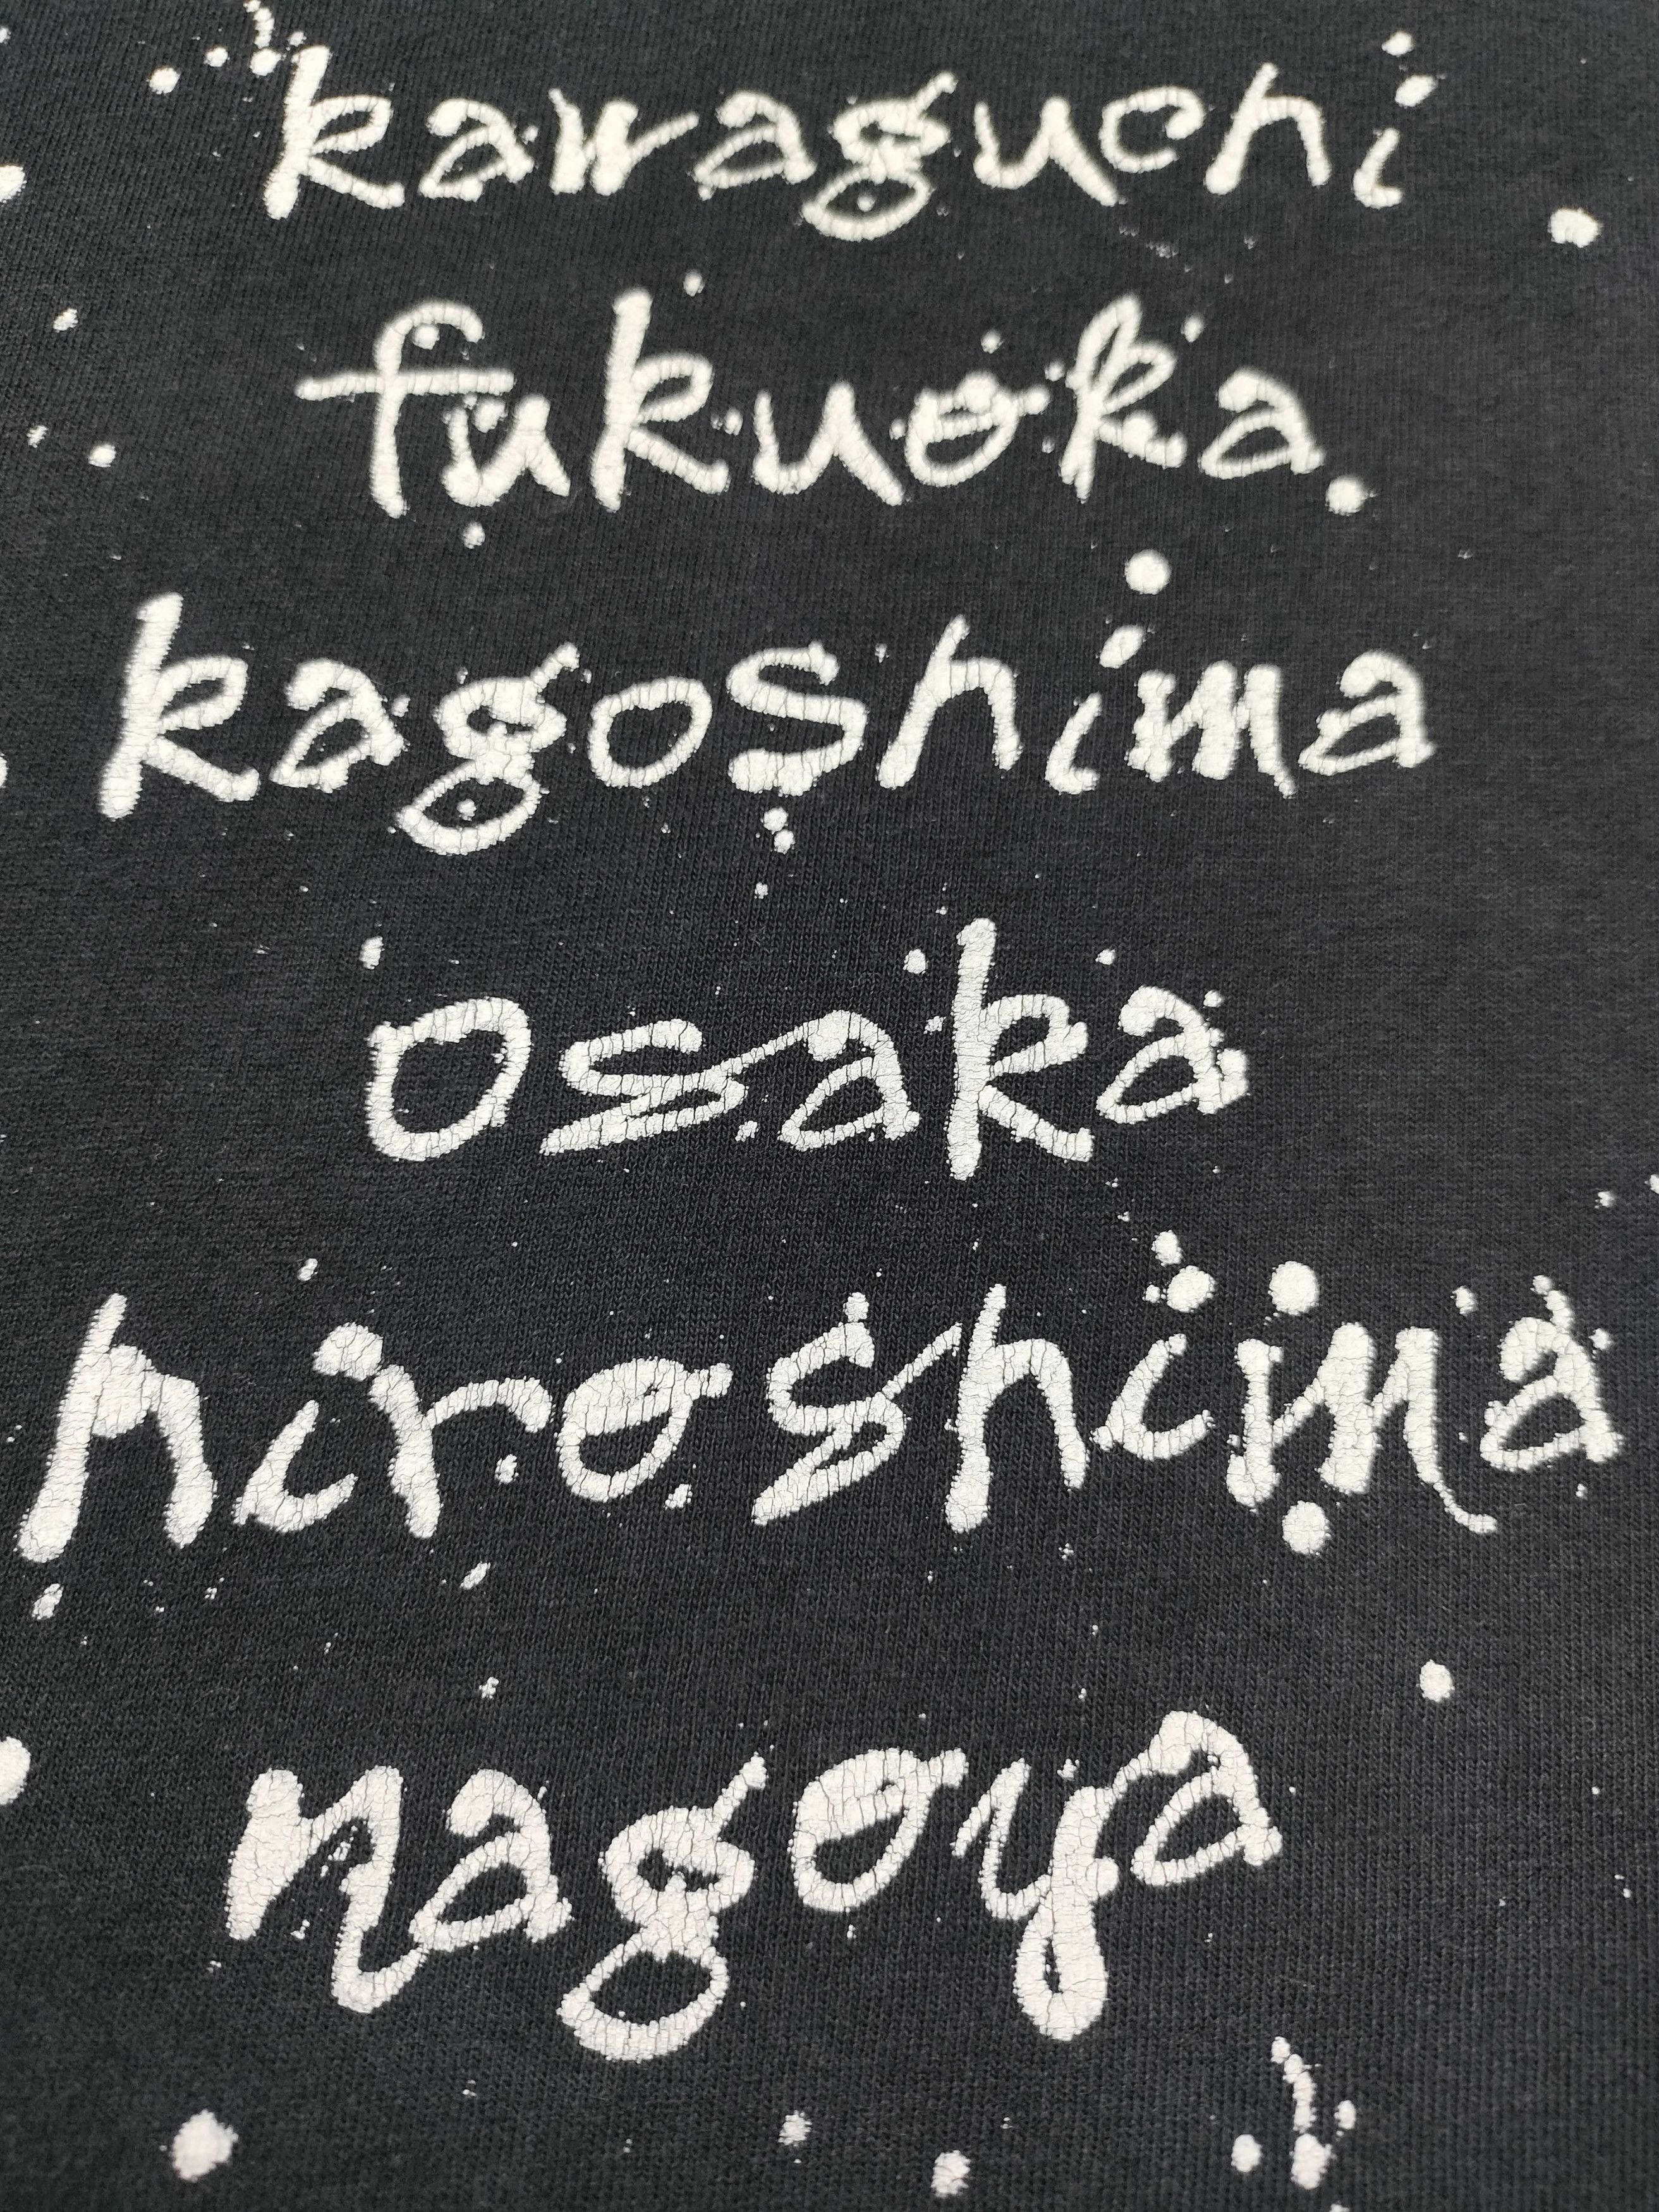 kawaguchi
fukuoka
kagoshima
osaka
hiroshima
nagoya